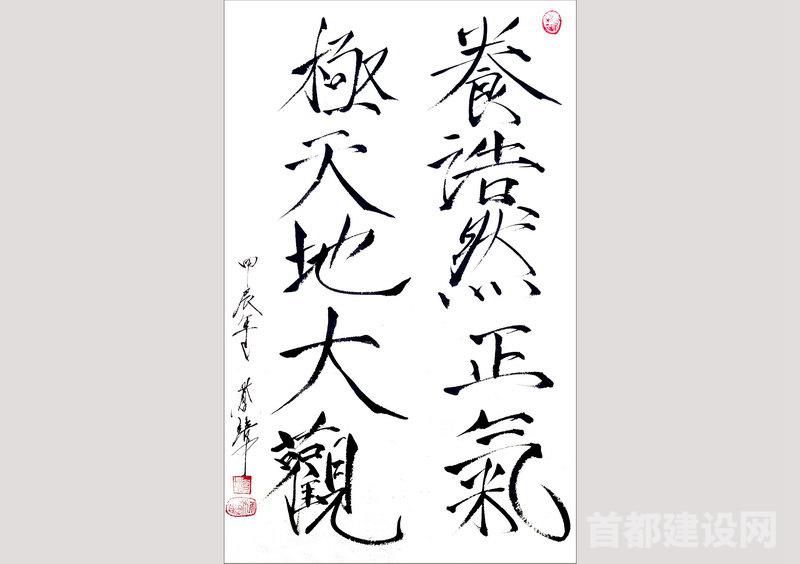 養浩然正氣
極天地大觀
甲辰年
首都建设网